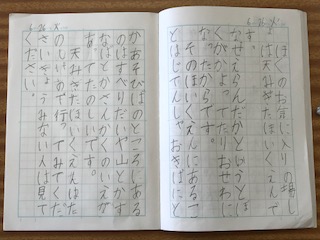 ぼくのお気に入りの場しょ
は天みきたほいくえんで
す。
なぜえらんだかというとぼ
くがかよっておりおせわに
なったからです。
ほいくえんにある
とはじてんしゃおきばにと
かあそびばのところにある
のはすべりだいや山とかす
なばとかさんかくのいえが
ある。たのしいです。
天みきたほいくえんはた
のしいので行ってみてくだ
さい。きょうみない人は見て
ください。